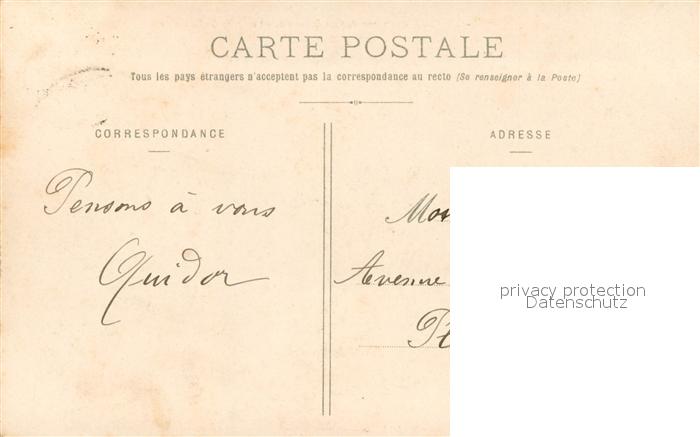 CARTE POSTALE
Tous les pays étrangers n'acceptent pas la correspondance au recto (Se renseigner à la Poste)
CORRESPONDANCE
Pensons à vous
Quidor
ADRESSE
Avenue
privacy protection
Datenschutz